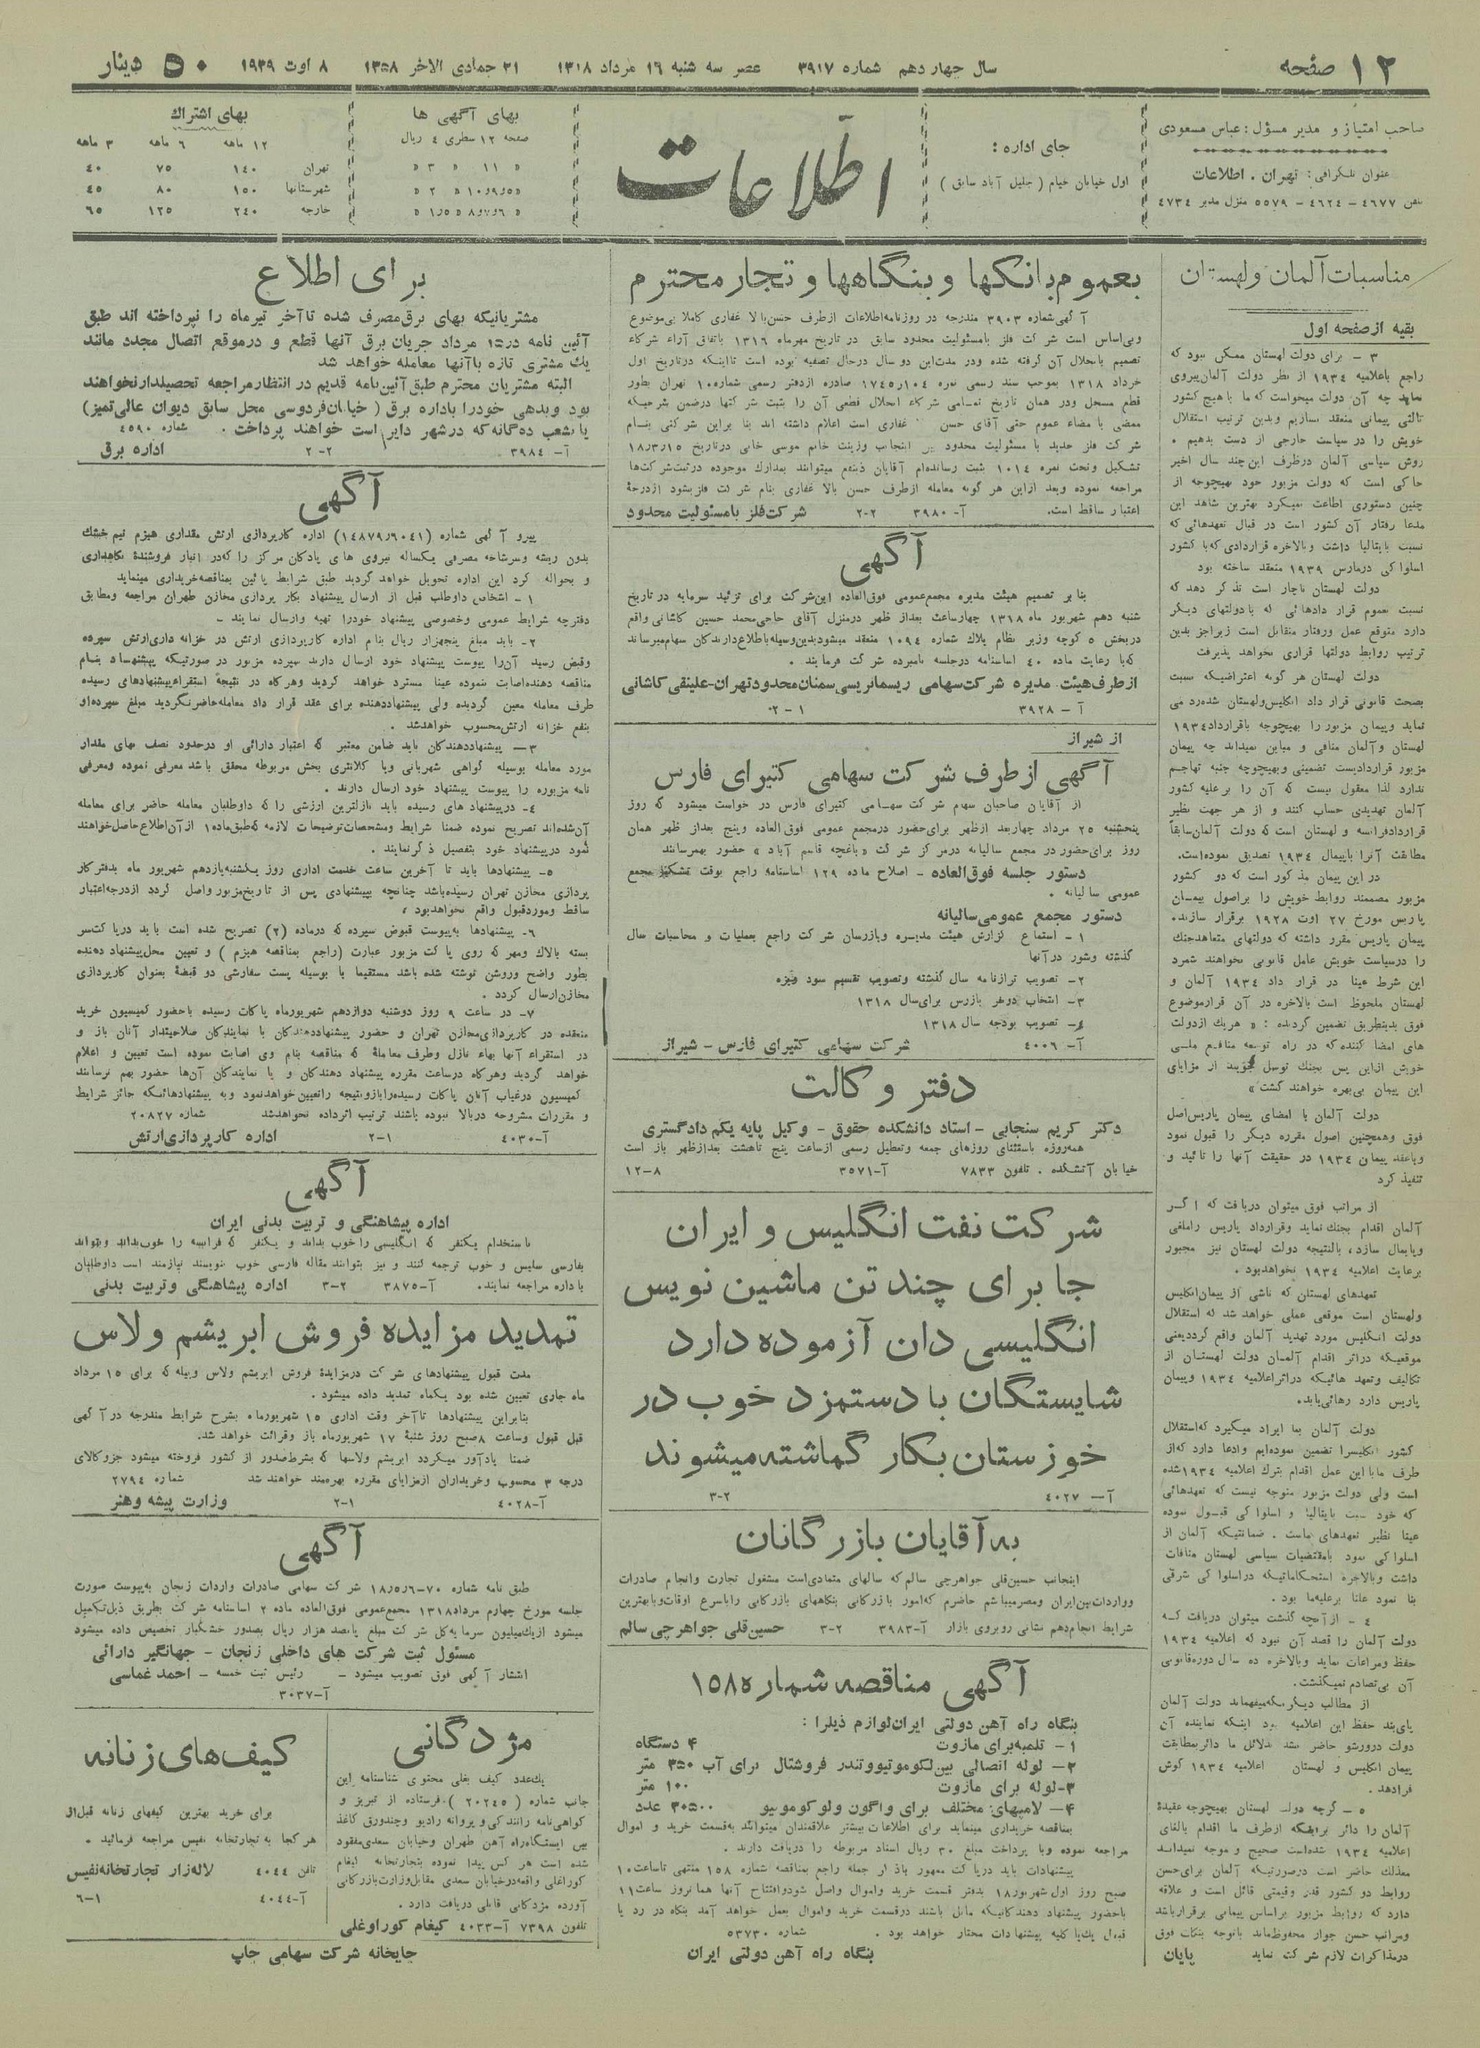 ۱۲ صفحه
سال چهاردهم شماره ۳۹۱۷
عصر سه شنبه ۱۶ مرداد ۱۳۱۸
۲۱ جمادی الاخر ۱۳۵۸
۸ اوت ۱۹۳۹
۵۰ دینار
صاحب امتیاز و مدیر مسؤل: عباس مسعودی
عنوان تلگرافی: تهران . اطلاعات
تلفن ۴۶۷۷ – ۴۶۲۴ – ۵۵۷۹ منزل مدیر ۴۷۳۴
جای اداره:
اول خیابان خیام ( جلیل آباد سابق )
اطلاعات
بهای آگهی ها
صفحه ۱۲ سطری ۴ ریال
بهای اشتراك
۱۲ ماهه ۶ ماهه ۳ ماهه
تهران ۱۴۰ ۷۵ ۴۰
شهرستانها ۱۵۰ ۸۰ ۴۵
خارجه ۲۴۰ ۱۲۵ ۶۵
مناسبات آلمان و لهستان
بقیه از صفحه اول
۳ – برای دولت لهستان ممکن نبود که
راجع باعلامیه ۱۹۳۴ از نظر دولت آلمان پیروی
نماید چه آن دولت میخواست که ما با هیچ کشور
ثالثی پیمانی منعقد نسازیم وبدین ترتیب استقلال
خویش را در سیاست خارجی از دست بدهیم .
روش سیاسی آلمان درظرف این چند سال اخیر
حاکی است که دولت مزبور خود بهیچوجه از
چنین دستوری اطاعت نمیکرد بهترین شاهد این
مدعا رفتار آن کشور است در قبال تعهدهائی که
نسبت بایتالیا داشت وبالاخره قراردادی که با کشور
اسلواکی درمارس ۱۹۳۹ منعقد ساخته بود
دولت لهستان ناچار است تذکر دهد که
نسبت بعموم قرار دادهائی که بادولتهای دیگر
دارد متوقع عمل ورفتار متقابل است زیرا جز بدین
ترتیب روابط دولتها قراری نخواهد پذیرفت
دولت لهستان هر گونه اعتراضیکه نسبت
بصحت قانونی قرار داد انگلیس ولهستان شده رد می
نماید وپیمان مزبور را بهیچوجه باقرارداد ۱۹۳۴
لهستان وآلمان منافی و مباین نمیداند چه پیمان
مزبور قراردادیست تضمینی وبهیچوجه جنبه تهاجم
ندارد لذا معقول نیست که آن را برعلیه کشور
آلمان تهدیدی حساب کنند و از هر جهت نظیر
قرارداد فرانسه و لهستان است که دولت آلمان سابقاً
مطابقت آنرا باپیمان ۱۹۳۴ تصدیق نموده است.
در این پیمان مذکور است که دو کشور
مزبور مصممند روابط خویش را براصول پیمان
پاریس مورخ ۲۷ اوت ۱۹۲۸ برقرار سازند.
پیمان پاریس مقرر داشته که دولتهای متعاهد جنك
را درسیاست خویش عامل قانونی نخواهند شمرد
این شرط عینا در قرار داد ۱۹۳۴ آلمان و
لهستان ملحوظ است بالاخره در آن قرار موضوع
فوق بدینطریق تضمین گردیده : « هریك ازدولت
های امضا کننده که در راه توسعه منافع ملی
خویش ازاین پس بجنك توسل بجویند از مزایای
این پیمان بی بهره خواهند گشت »
دولت آلمان با امضای پیمان پاریس اصل
فوق وهمچنین اصول مقرره دیگر را قبول نمود
وباعقد پیمان ۱۹۳۴ در حقیقت آنها را تائید و
تنفیذ کرد
از مراتب فوق میتوان دریافت که اگر
آلمان اقدام بجنك نماید وقرارداد پاریس راملغی
وپایمال سازد، بالنتیجه دولت لهستان نیز مجبور
برعایت اعلامیه ۱۹۳۴ نخواهد بود.
تعهدهای لهستان که ناشی از پیمان انگلیس
ولهستان است موقعی عملی خواهد شد که استقلال
دولت انگلیس مورد تهدید آلمان واقع گردد یعنی
موقعیکه دراثر اقدام آلمان دولت لهستان از
تکالیف وتعهد هائیکه دراثر اعلامیه ۱۹۳۴ وپیمان
پاریس دارد رهائی یابد.
دولت آلمان بما ایراد میگیرد که استقلال
کشور انگلیسرا تضمین نموده ایم وادعا دارد که از
طرف ما با این عمل اقدام بترك اعلامیه ۱۹۳۴ شده
است ولی دولت مزبور متوجه نیست که تعهدهائی
که خود نسبت بایتالیا و اسلواکی قبول نموده
عینا نظیر تعهدهای ماست . ضمانتیکه آلمان از
اسلواکی نمود بامقتضیات سیاسی لهستان منافات
داشت وبالاخره استحکاماتیکه دراسلواکی شرقی
بنا نمود علنا برعلیه ما بود .
۴ – ازآنچه گذشت میتوان دریافت که
دولت آلمان را قصد آن نبود که اعلامیه ۱۹۳۴
حفظ ومراعات نماید وبالاخره ده سال دوره قانونی
آن بی تصادم نمیگذشت.
از مطالب دیگر که میفهماند دولت آلمان
پای بند حفظ این اعلامیه نبود اینکه نماینده آن
دولت درورشو حاضر نشد بدلائل ما دائر بمطابقت
پیمان انگلیس و لهستان اعلامیه ۱۹۳۴ گوش
فرادهد.
۵ – گرچه دولت لهستان بهیچوجه عقیدهٔ
آلمان را دائر براینکه ازطرف ما اقدام بالغای
اعلامیه ۱۹۳۴ شده است صحیح و موجه نمیداند
معذلك حاضر است درصورتیکه آلمان برای حسن
روابط دو کشور قدر وقیمتی قائل است و علاقه
دارد که روابط مزبور براساس پیمانی برقرار باشد
ومراتب حسن جوار محفوظ ماند باتوجه بنکات فوق
درمذاکرات لازم شرکت نماید پایان
بعموم بانکها و بنگاهها و تجار محترم
آگهی شماره ۳۹۰۳ مندرجه در روزنامه اطلاعات ازطرف حسن بالا غفاری کاملا بی موضوع
وبی اساس است شرکت فلز بامسئولیت محدود سابق در تاریخ مهرماه ۱۳۱۶ باتفاق آراء شرکاء
تصمیم بانحلال آن گرفته شده ودر مدت این دو سال درحال تصفیه بوده است تااینکه درتاریخ اول
خرداد ۱۳۱۸ بموجب سند رسمی نمره ۱۷۴۵ر۱۰۴ صادره ازدفتر رسمی شماره ۱۰ تهران بطور
قطع مسجل ودر همان تاریخ تمامی شرکاء انحلال قطعی آن را بثبت شرکتها درضمن شرحیکه
ممضی با مضاء عموم حتی آقای حسن غفاری است اعلام داشته اند بنا براین شرکتی بنام
شرکت فلز جدید با مسئولیت محدود بین اینجانب وزینت خانم موسی خانی درتاریخ ۱۸ر۳ر۱۵
تشکیل وتحت نمره ۱۰۱۴ ثبت رسانده ام آقایان ذینفع میتوانند بمدارك موجوده درثبت شرکتها
مراجعه نموده وبعد ازاین هر گونه معامله ازطرف حسن بالا غفاری بنام شرکت فلز بشود ازدرجهٔ
اعتبار ساقط است. آ- ۳۹۸۰ ۲-۲ شرکت فلز بامسئولیت محدود
آگهی
بنا بر تصمیم هیئت مدیره مجمع عمومی فوق العاده این شرکت برای تزئید سرمایه در تاریخ
شنبه دهم شهریور ماه ۱۳۱۸ چهارساعت بعداز ظهر درمنزل آقای حاجی محمد حسین کاشانی واقع
دربخش ۵ کوچه وزیر نظام پلاك شماره ۱۰۹۴ منعقد میشود بدین وسیله باطلاع دارندگان سهام میرساند
که با رعایت ماده ۴۰ اساسنامه درجلسه نامبرده شرکت فرمایند .
ازطرف هیئت مدیره شرکت سهامی ریسمانریسی سمنان محدود تهران- علینقی کاشانی
آ – ۳۹۲۸
از شیراز
آگهی ازطرف شرکت سهامی کتیرای فارس
از آقایان صاحبان سهام شرکت سهامی کتیرای فارس در خواست میشود که روز
پنجشنبه ۲۵ مرداد چهاربعد ازظهر برای حضور درمجمع عمومی فوق العاده وپنج بعداز ظهر همان
روز برای حضور در مجمع سالیانه درمرکز شرکت «باغچه قاسم آباد» حضور بهمرسانند
دستور جلسه فوق العاده – اصلاح ماده ۱۲۹ اساسنامه راجع بوقت تشکیل مجمع
عمومی سالیانه .
دستور مجمع عمومی سالیانه
۱ – استماع گزارش هیئت مدیره وبازرسان شرکت راجع بعملیات و محاسبات سال
گذشته وشور درآنها
۲- تصویب ترازنامه سال گذشته وتصویب تقسیم سود ویژه
۳- انتخاب دونفر بازرس برای سال ۱۳۱۸
۴– تصویب بودجه سال ۱۳۱۸
آ- ۴۰۰۶ شرکت سهامی کتیرای فارس – شیراز
دفتر وکالت
دکتر کریم سنجابی – استاد دانشکده حقوق – وکیل پایه یکم دادگستری
همه روزه باستثنای روزهای جمعه وتعطیل رسمی ازساعت پنج تاهشت بعدازظهر باز است
خیابان آتشکده . تلفون ۷۸۳۳ آ-۳۵۷۱ ۸-۱۲
شرکت نفت انگلیس و ایران
جا برای چند تن ماشین نویس
انگلیسی دان آزموده دارد
شایستگان با دستمزد خوب در
خوزستان بکار گماشته میشوند
آ- ۴۰۲۷ ۲-۳
به آقایان بازرگانان
اینجانب حسین قلی جواهرچی سالم که سالهای متمادی است مشغول تجارت وانجام صادرات
وواردات بین ایران ومصر میباشم حاضرم که امور بازرگانی بنگاههای بازرگانی راباسرع اوقات وبا بهترین
شرایط انجام دهم نشانی روبروی بازار آ-۳۹۸۳ ۲-۳ حسین قلی جواهرچی سالم
آگهی مناقصه شماره ۱۵۸
بنگاه راه آهن دولتی ایران لوازم ذیلرا :
۱- تلمبه برای مازوت ۴ دستگاه
۲- لوله اتصالی بین لکوموتیو وتندر فروشتال برای آب ۳۵۰ متر
۳- لوله برای مازوت ۱۰۰ متر
۴– لامپهای مختلف برای واگون ولوکوموتیو ۳۰۵۰۰ عدد
بمناقصه خریداری مینماید برای اطلاعات بیشتر علاقمندان میتوانند به قسمت خرید و اموال
مراجعه نموده وبا پرداخت مبلغ ۳۰ ریال اسناد مربوطه را دریافت دارند .
پیشنهادات باید درپاکت ممهور بلاك از جمله راجع بمناقصه شماره ۱۵۸ منتهی تاساعت ۱۰
صبح روز اول شهریور ۱۸ بدفتر قسمت خرید واموال واصل شود وافتتاح آنها همانروز ساعت ۱۱
باحضور پیشنهاد دهندگانیکه مایل باشند درقسمت خرید واموال بعمل خواهد آمد بنگاه در رد یا
قبول یك یا کلیه پیشنهادات مختار خواهد بود . شماره ۵۳۷۳۰
بنگاه راه آهن دولتی ایران
برای اطلاع
مشتریانیکه بهای برق مصرف شده تا آخر تیرماه را نپرداخته اند طبق
آئین نامه در ۱۵ مرداد جریان برق آنها قطع و درموقع اتصال مجدد مانند
یك مشتری تازه باآنها معامله خواهد شد
البته مشتریان محترم طبق آئین نامه قدیم در انتظار مراجعه تحصیلدار نخواهند
بود وبدهی خودرا باداره برق ( خیابان فردوسی محل سابق دیوان عالی تمیز)
یا بشعب ده گانه که درشهر دایر است خواهند پرداخت . شماره ۴۵۹۰
آ- ۳۹۸۴ ۲-۲ اداره برق
آگهی
پیرو آگهی شماره (۶۰۴۱ر۱۴۸۷۹) اداره کارپردازی ارتش مقداری هیزم نیم خشك
بدون ریشه وسرشاخه مصرفی یکساله نیروی های پادگان مرکز را که در انبار فروشنده نگاهداری
و بحواله کرد این اداره تحویل خواهد گردید طبق شرایط پائین بمناقصه خریداری مینماید
۱- اشخاص داوطلب قبل از ارسال پیشنهاد بکار پردازی مخازن طهران مراجعه ومطابق
دفترچه شرایط عمومی وخصوصی پیشنهاد خودرا تهیه وارسال نمایند –
۲- باید مبلغ پنجهزار ریال بنام اداره کارپردازی ارتش در خزانه داری ارتش سپرده
وقبض رسید آن را پیوست پیشنهاد خود ارسال دارند سپرده مزبور در صورتیکه پیشنهاد بنام
مناقصه دهنده اصابت ننموده عینا مسترد خواهد گردید وهرگاه در نتیجهٔ استقراء پیشنهادهای رسیده
طرف معامله معین گردیده ولی پیشنهاددهنده برای عقد قرار داد معامله حاضر نگردید مبلغ سپرده او
بنفع خزانه ارتش محسوب خواهد شد.
۳– پیشنهاددهندگان باید ضامن معتبر که اعتبار دارائی او درحدود نصف بهای مقدار
مورد معامله بوسیله گواهی شهربانی ویا کلانتری بخش مربوطه محقق باشد معرفی نموده ومعرفی
نامه مزبوره را پیوست پیشنهاد خود ارسال دارند .
۴- درپیشنهاد های رسیده باید نازلترین ارزشی را که داوطلبان معامله حاضر برای معامله
آن شده اند تصریح نموده ضمنا شرایط ومشخصات توضیحات لازمه که طبق ماده ۱ از آن اطلاع حاصل خواهند
نمود درپیشنهاد خود بتفصیل ذکر نمایند .
۵- پیشنهادها باید تا آخرین ساعت خدمت اداری روز یکشنبه یازدهم شهریور ماه بدفتر کار
پردازی مخازن تهران رسیده باشد چنانچه پیشنهادی پس از تاریخ مزبور واصل گردد ازدرجه اعتبار
ساقط ومورد قبول واقع نخواهد بود ،
۶- پیشنهادها به پیوست قبوض سپرده که درماده (۲) تصریح شده است باید درپاکت سر
بسته بالاك ومهر که روی پاکت مزبور عبارت (راجع بمناقصه هیزم ) و تعیین محل پیشنهاد دهنده
بطور واضح وروشن نوشته شده باشد مستقیما یا بوسیله پست سفارشی دو قبضهٔ بعنوان کارپردازی
مخازن ارسال گردد .
۷- در ساعت ۹ روز دوشنبه دوازدهم شهریور ماه پاکات رسیده باحضور کمیسیون خرید
منعقده در کارپردازی مخازن تهران و حضور پیشنهاددهندگان یا نمایندگان صلاحیتدار آنان باز و
در استقراء آنها بهاء نازل وطرف معامله که مناقصه بنام وی اصابت نموده است تعیین و اعلام
خواهد گردید وهرگاه درساعت مقرره پیشنهاد دهندگان و یا نمایندگان آن‌ها حضور بهم نرسانند
کمیسیون درغیاب آنان پاکات رسیده را باز ونتیجه راتعیین خواهد نمود وبه پیشنهادهائیکه حائز شرایط
و مقررات مشروحه دربالا نبوده باشند ترتیب اثرداده نخواهد شد شماره ۲۰۸۲۷
آ-۴۰۳۰ ۱-۲ اداره کارپردازی ارتش
آگهی
اداره پیشاهنگی و تربیت بدنی ایران
باستخدام یکنفر که انگلیسی را خوب بداند و یکنفر که فرانسه را خوب بداند وبتواند
بفارسی سلیس و خوب ترجمه کنند و نیز بتوانند مقاله فارسی خوب بنویسند نیازمند است داوطلبان
باداره مراجعه نمایند. آ-۳۸۷۵ ۲-۳ اداره پیشاهنگی وتربیت بدنی
تمدید مزایده فروش ابریشم ولاس
مدت قبول پیشنهادهای شرکت درمزایدهٔ فروش ابریشم ولاس وپیله که برای ۱۵ مرداد
ماه جاری تعیین شده بود یکماه تمدید داده میشود .
بنابراین پیشنهادها تاآخر وقت اداری ۱۵ شهریورماه بشرح شرایط مندرجه درآگهی
قبل قبول وساعت ۸ صبح روز شنبهٔ ۱۷ شهریورماه باز وقرائت خواهد شد.
ضمنا یادآور میگردد ابریشم ولاسها که بشرط صدور از کشور فروخته میشود جزو کالای
درجه ۳ محسوب وخریداران ازمزایای مقرره بهره مند خواهند شد شماره ۲۷۹۴
آ-۴۰۲۸ ۱-۲ وزارت پیشه وهنر
آگهی
طبق نامه شماره ۷۰-۱۸ر۵ر۶ شرکت سهامی صادرات واردات زنجان به پیوست صورت
جلسه مورخ چهارم مرداد ۱۳۱۸ مجمع عمومی فوق العاده ماده ۲ اساسنامه شرکت بطریق ذیل تکمیل
میشود ازیك میلیون سرمایه کل شرکت مبلغ پانصد هزار ریال بصدور خشکبار تخصیص داده میشود
مسئول ثبت شرکت های داخلی زنجان – جهانگیر دارائی
انتشار آگهی فوق تصویب میشود – رئیس ثبت خمسه – احمد غماسی
آ-۳۰۳۷
مژدگانی
یك عدد کیف بغلی محتوی شناسنامه این
جانب شماره ( ۲۰۲۴۵ ) فرستاده از تبریز و
گواهی نامه رانندگی و پروانه رادیو وچندورق کاغذ
بین ایستگاه راه آهن طهران وخیابان سعدی مفقود
شده است هر کس پیدا نموده بتجارتخانه ایغام
کوراغلی واقعه درخیابان سعدی مقابل وزارت بازرگانی
آورده مژدگانی قابلی دریافت دارد .
تلفون ۷۳۹۸ آ-۴۰۳۳ کیغام کوراوغلی
کیف های زنانه
برای خرید بهترین کیفهای زنانه قبل از
هر کجا به تجارتخانه نفیس مراجعه فرمائید .
تلفن ۴۰۴۴ لاله زار تجارتخانه نفیس
آ-۴۰۴۴ ۱-۶
چاپخانه شرکت سهامی چاپ